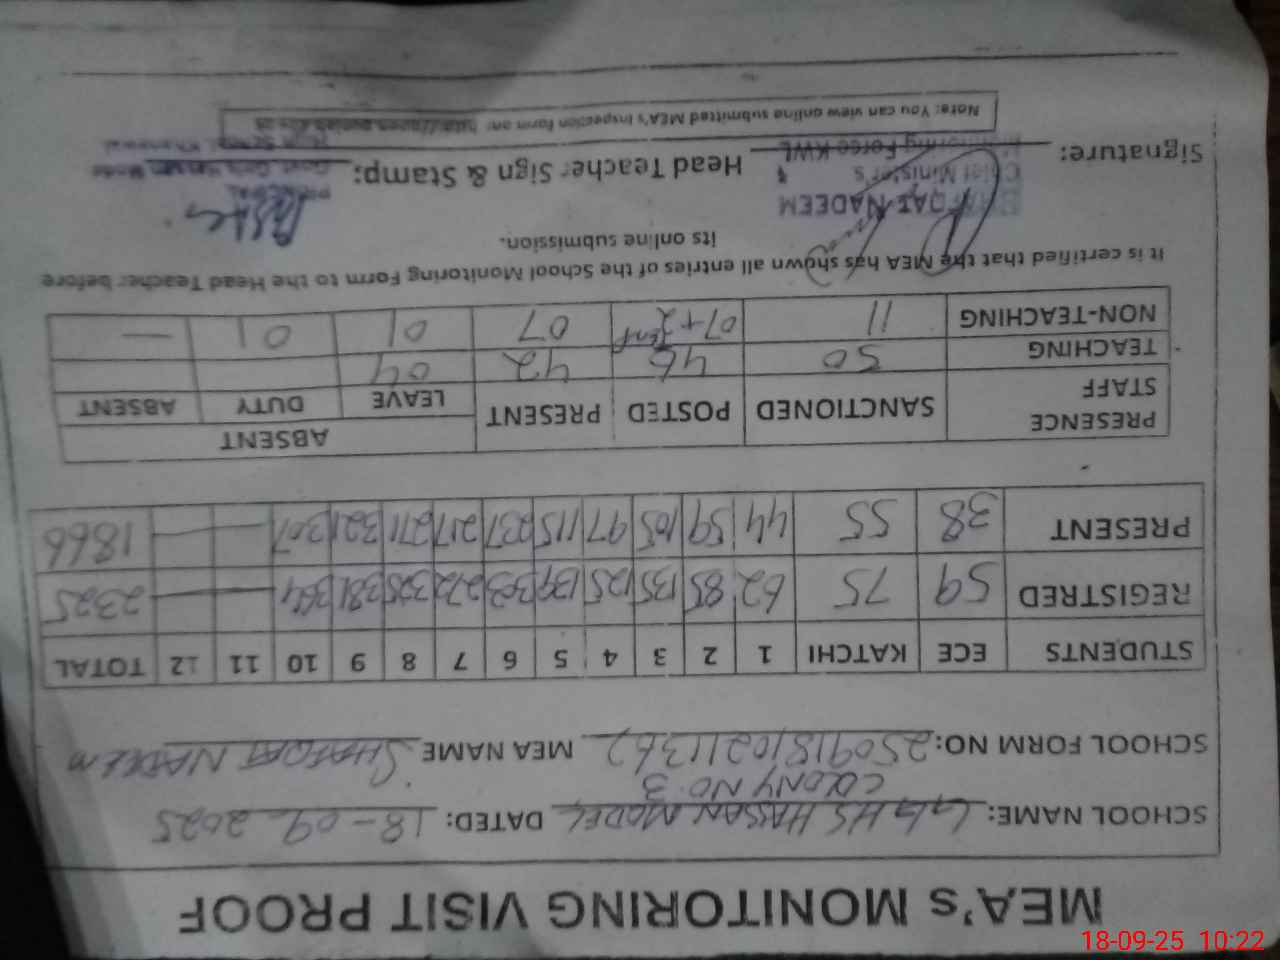 MEA's MONITORING VISIT PROOF
SCHOOL NAME: GGHS HASSAN MODEL DATED: 18-09-2025
COLONY NO. 3
SCHOOL FORM NO: 25091810211362 MEA NAME SHAFQAT NADEEM
STUDENTS ECE KATCHI 1 2 3 4 5 6 7 8 9 10 11 12 TOTAL
REGISTRED 59 75 62 85 135 125 139 303 272 325 381 364 — — 2325
PRESENT 38 55 44 59 105 97 115 237 217 271 321 307 — — 1866
PRESENCE STAFF SANCTIONED POSTED PRESENT ABSENT
LEAVE DUTY ABSENT
TEACHING 50 46 42 04
NON-TEACHING 11 07+2 07 01 01 —
It is certified that the MEA has shown all entries of the School Monitoring Form to the Head Teacher before
its online submission.
SHAFQAT NADEEM
Chief Minister's
Monitoring Force KWL
PRINCIPAL
High School Khanewal
Signature: Head Teacher Sign & Stamp:
Note: You can view online submitted MEA's inspection form on:
18-09-25 10:22